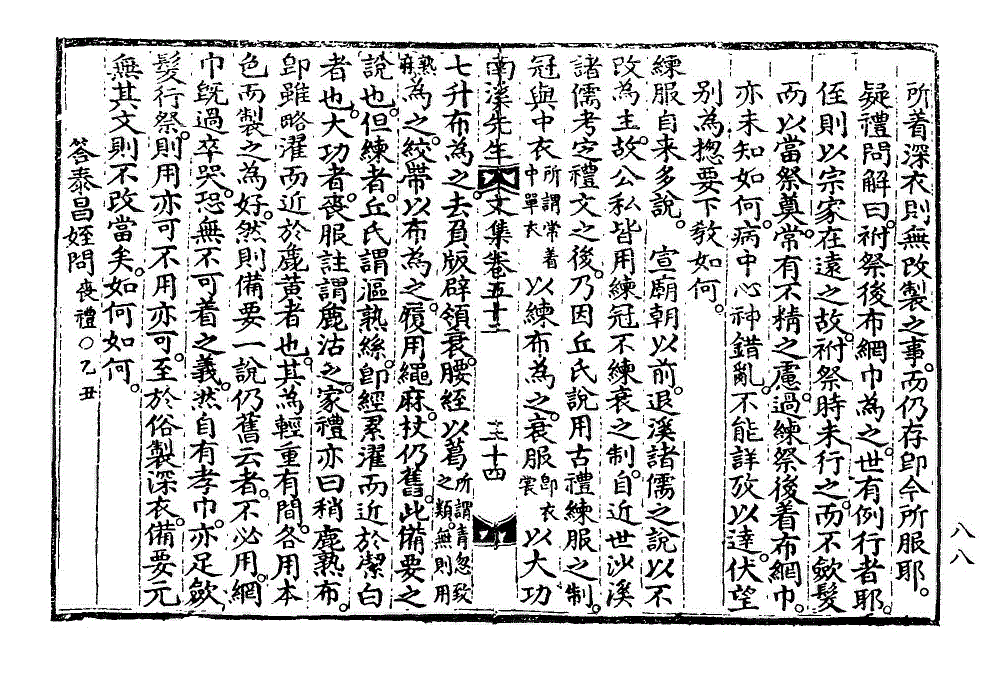 所着深衣則無改製之事。而仍存卽今所服耶。
疑禮問解曰。祔祭後布網巾爲之。世有例行者耶。
侄則以宗家在遠之故。祔祭時未行之。而不斂髮
而以當祭奠。常有不精之慮。過練祭後着布網巾。
亦未知如何。病中心神錯亂。不能詳攷以達。伏望
別爲揔要下敎如何。
練服自來多說。 宣廟朝以前。退溪諸儒之說以不
改爲主。故公私皆用練冠不練衰之制。自近世沙溪
諸儒考定禮文之後。乃因丘氏說用古禮練服之制。
冠與中衣所謂常着中單衣以練布爲之。衰服卽衣裳以大功
南溪先生文集卷五十二 三十四
七升布爲之。去負版辟領衰。腰絰以葛所謂靑忽致之類。無則用熟麻爲之。絞帶以布爲之。履用繩麻。杖仍舊。此備要之
說也。但練者。丘氏謂漚熟絲。卽經累濯而近於潔白
者也。大功者。喪服註謂麁沽之。家禮亦曰稍麁熟布。
卽雖略濯而近於麁黃者也。其爲輕重有間。各用本
色而製之爲好。然則備要一說仍舊云者。不必用。網
巾旣過卒哭。恐無不可着之義。然自有孝巾。亦足斂
髮行祭。則用亦可不用亦可。至於俗製深衣。備要元
無其文則不改當矣。如何如何。
答泰昌姪問喪禮○乙丑
八八